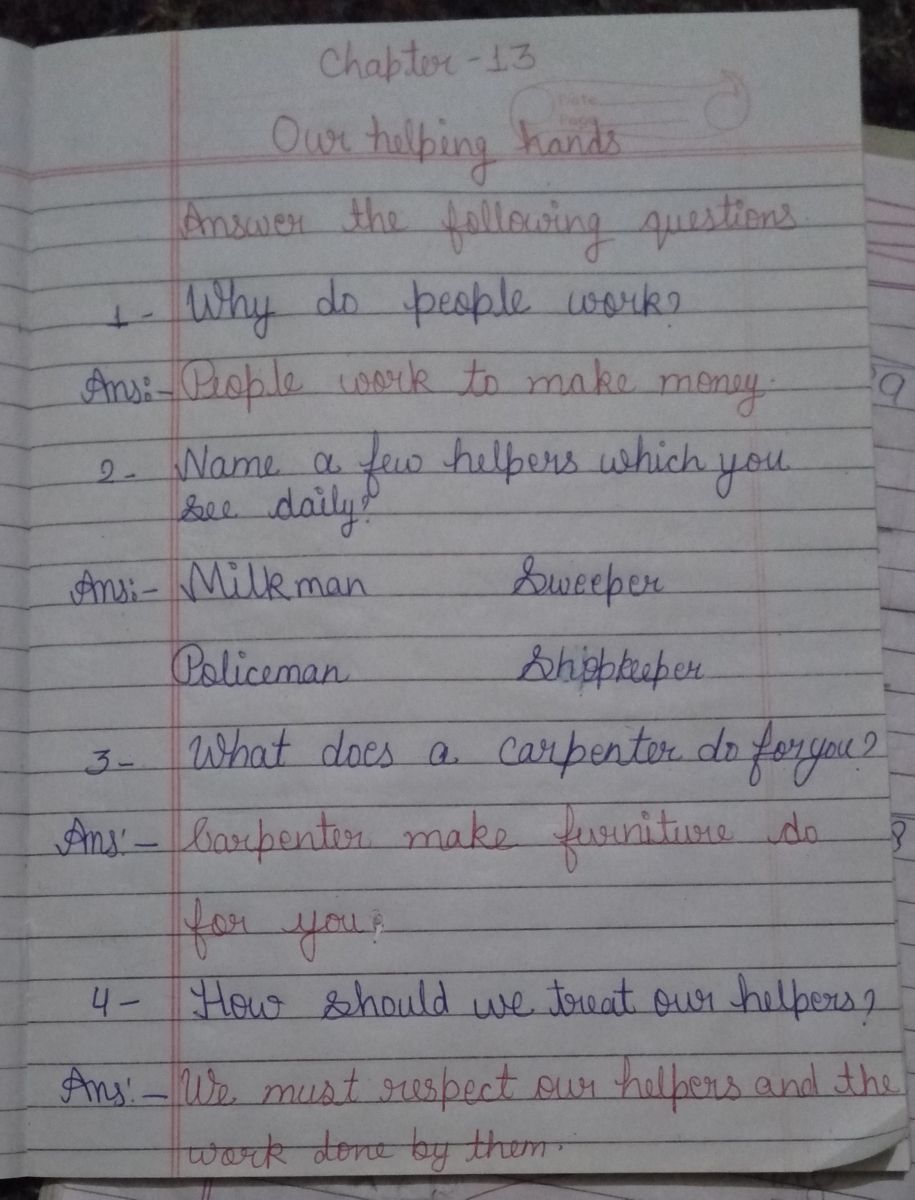 Chapter - 13
Date
Page
Our helping hands
Answer the following questions
1- Why do people work?
Ans:- People work to make money.
2- Name a few helpers which you
see daily?
Ans:- Milkman Sweeper
Policeman Shopkeeper
3- What does a carpenter do for you?
Ans:- Carpenter make furniture do
for you.
4- How should we treat our helpers?
Ans:- We must respect our helpers and the
work done by them.
9